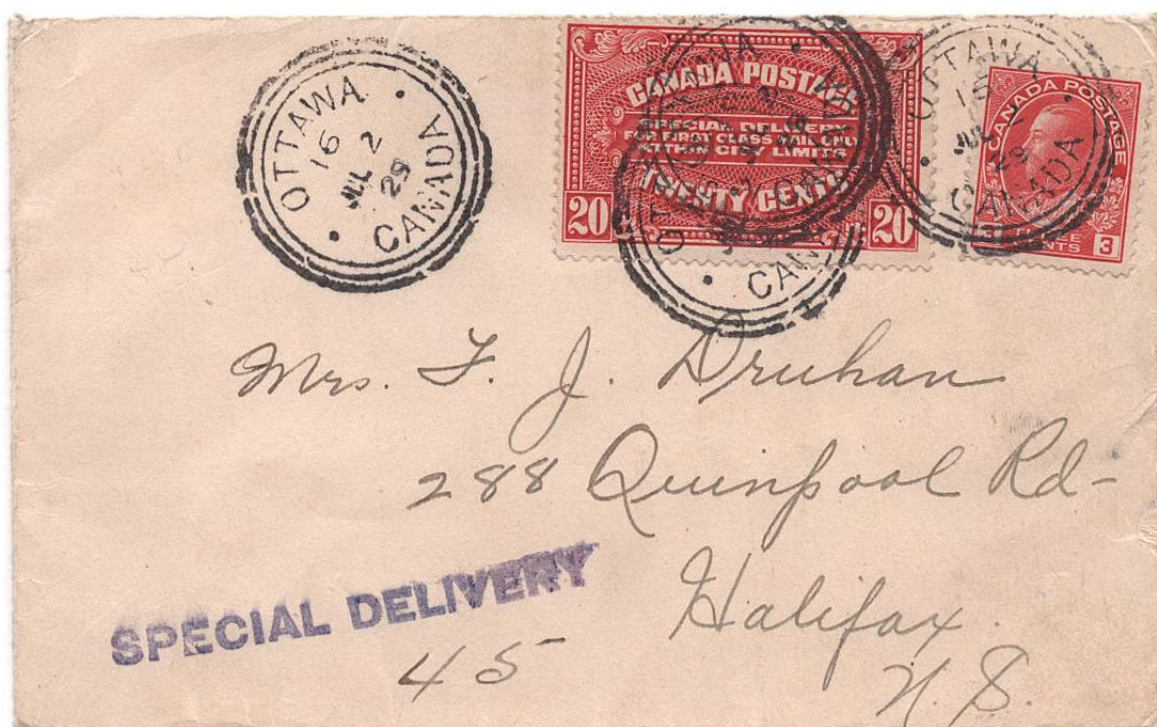 OTTAWA
16
JUL 2
29
CANADA
CANADA POSTAGE
SPECIAL DELIVERY
FOR FIRST CLASS MAIL ONLY
WITHIN CITY LIMITS
TWENTY CENTS
20 20
OTTAWA
CANADA
OTTAWA
16
JUL
29
CANADA
CANADA POSTAGE
CENTS 3
Mrs. F. J. Druhan
288 Quinpool Rd-
Halifax.
N. S.
SPECIAL DELIVERY
45